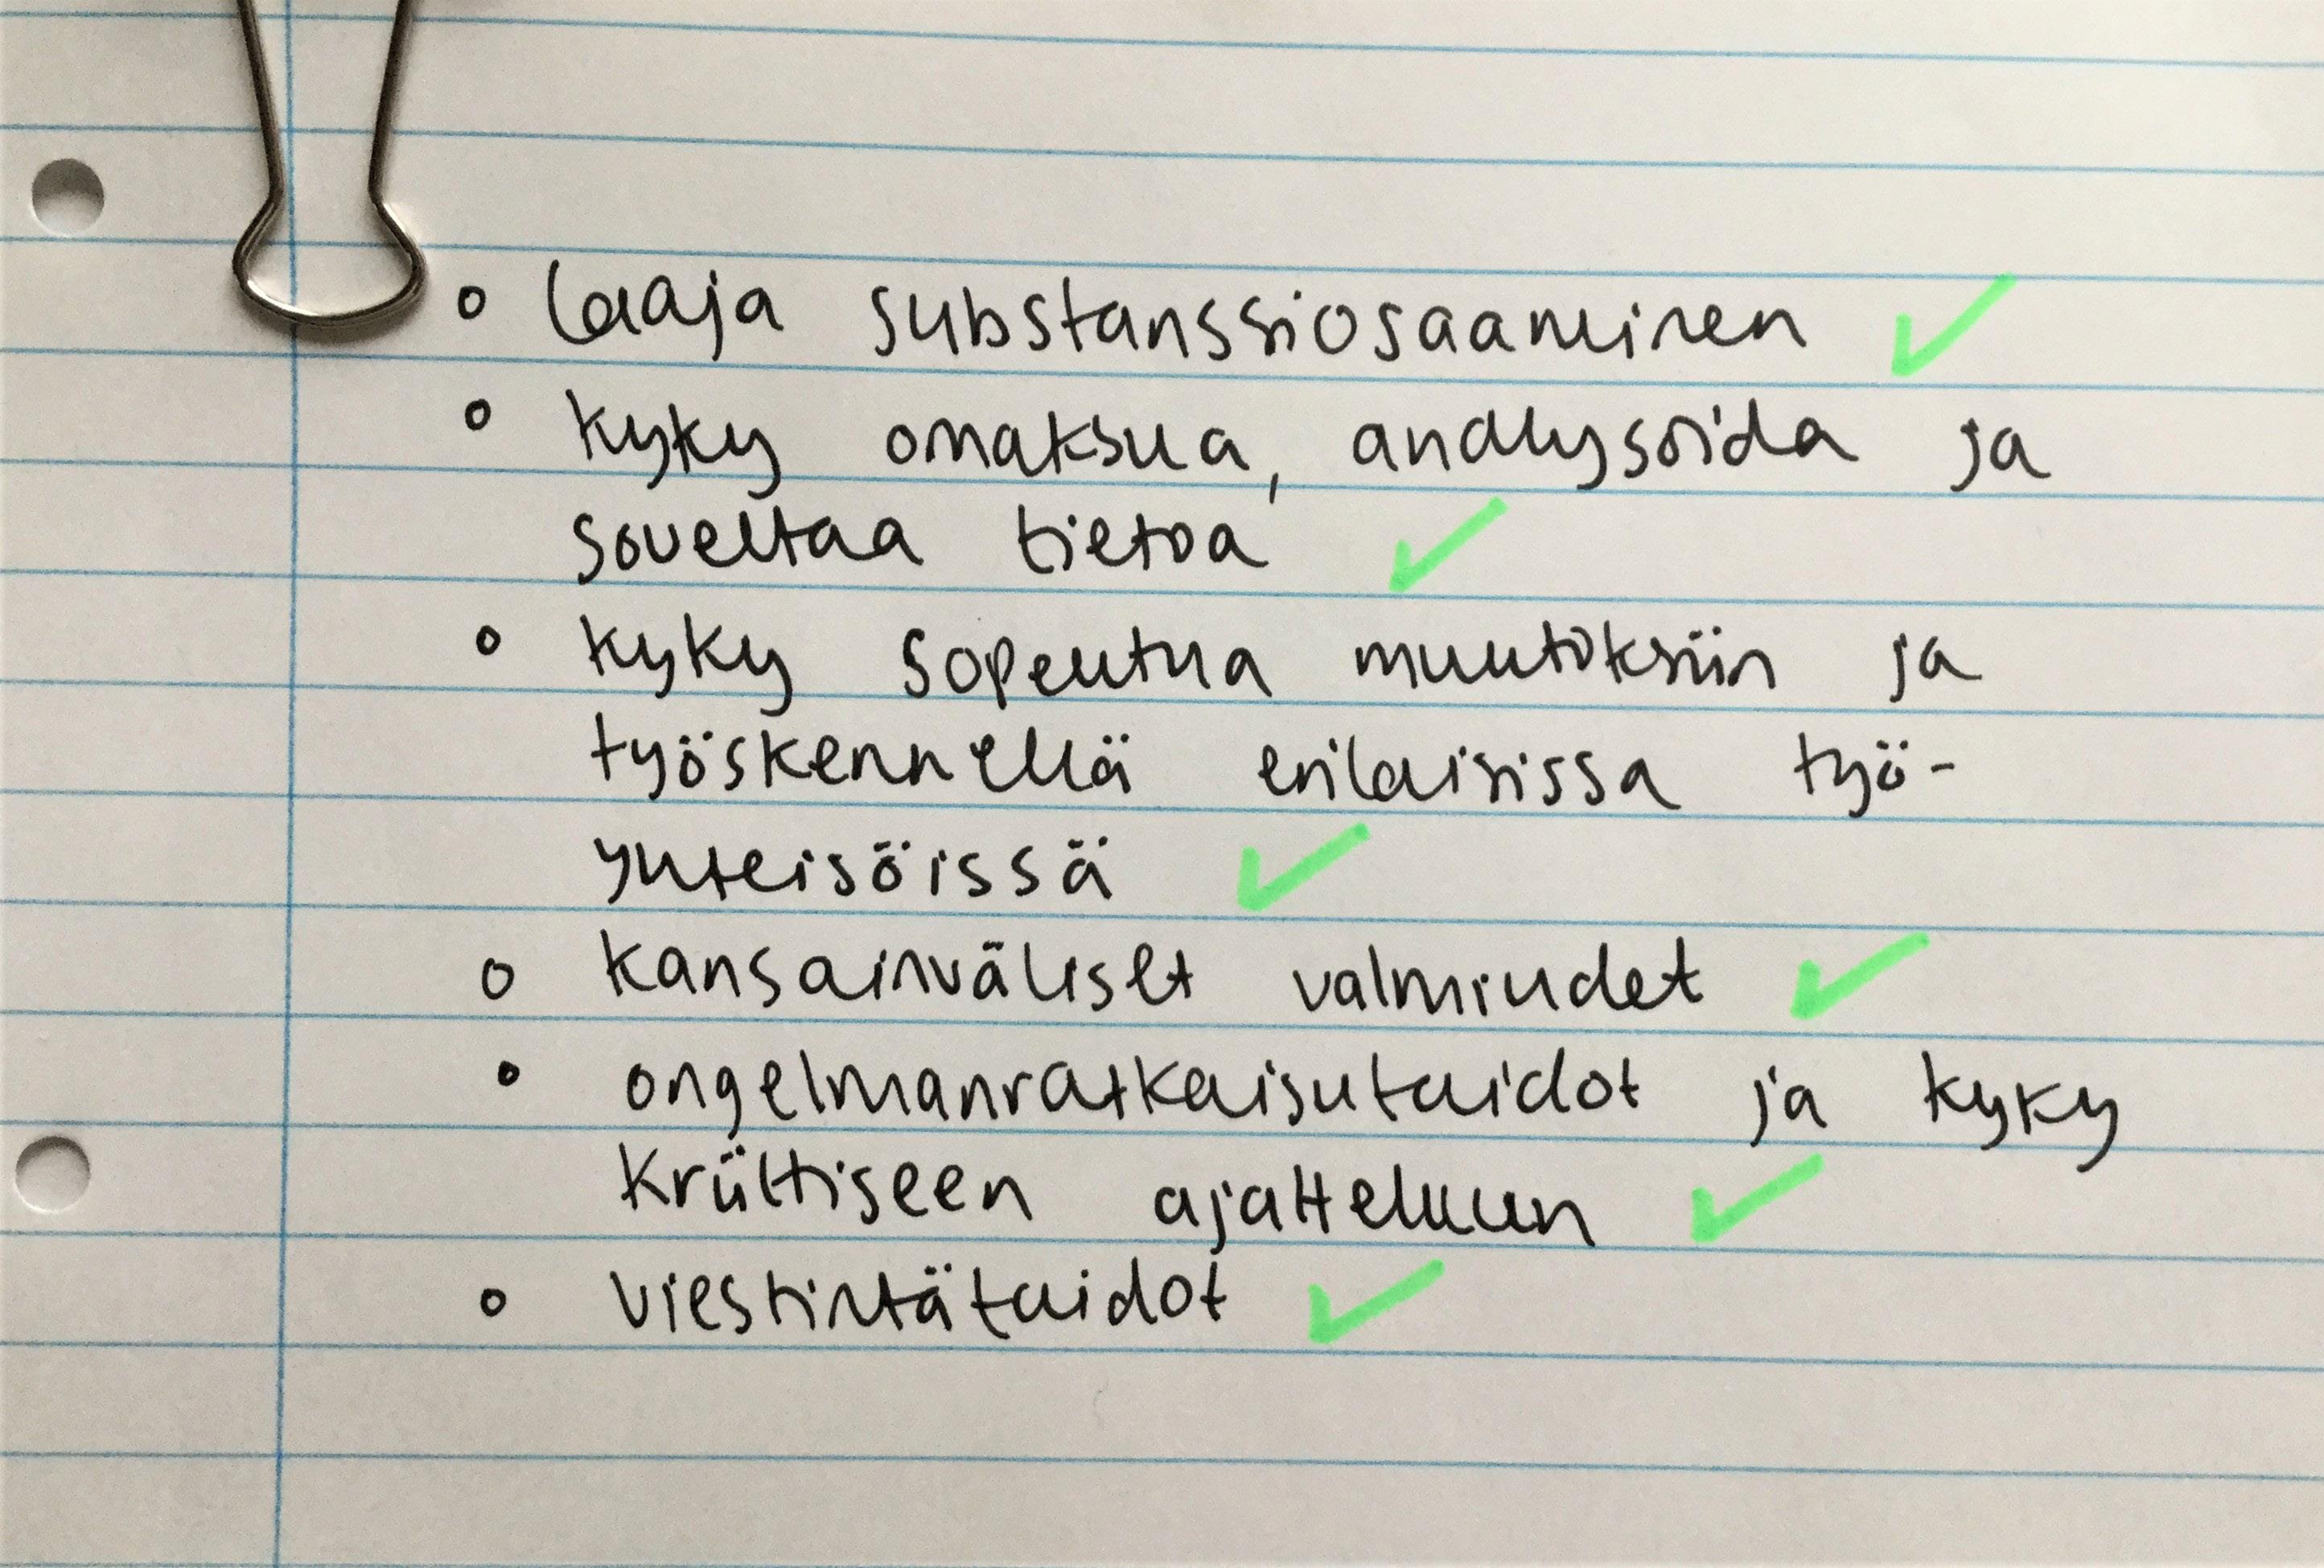 ◦ laaja substanssiosaaminen ✓
◦ kyky omaksua, analysoida ja
soveltaa tietoa ✓
◦ kyky sopeutua muutoksiin ja
työskennellä erilaisissa työ-
yhteisöissä ✓
◦ kansainväliset valmiudet ✓
◦ ongelmanratkaisutaidot ja kyky
kriittiseen ajatteluun ✓
◦ viestintätaidot ✓